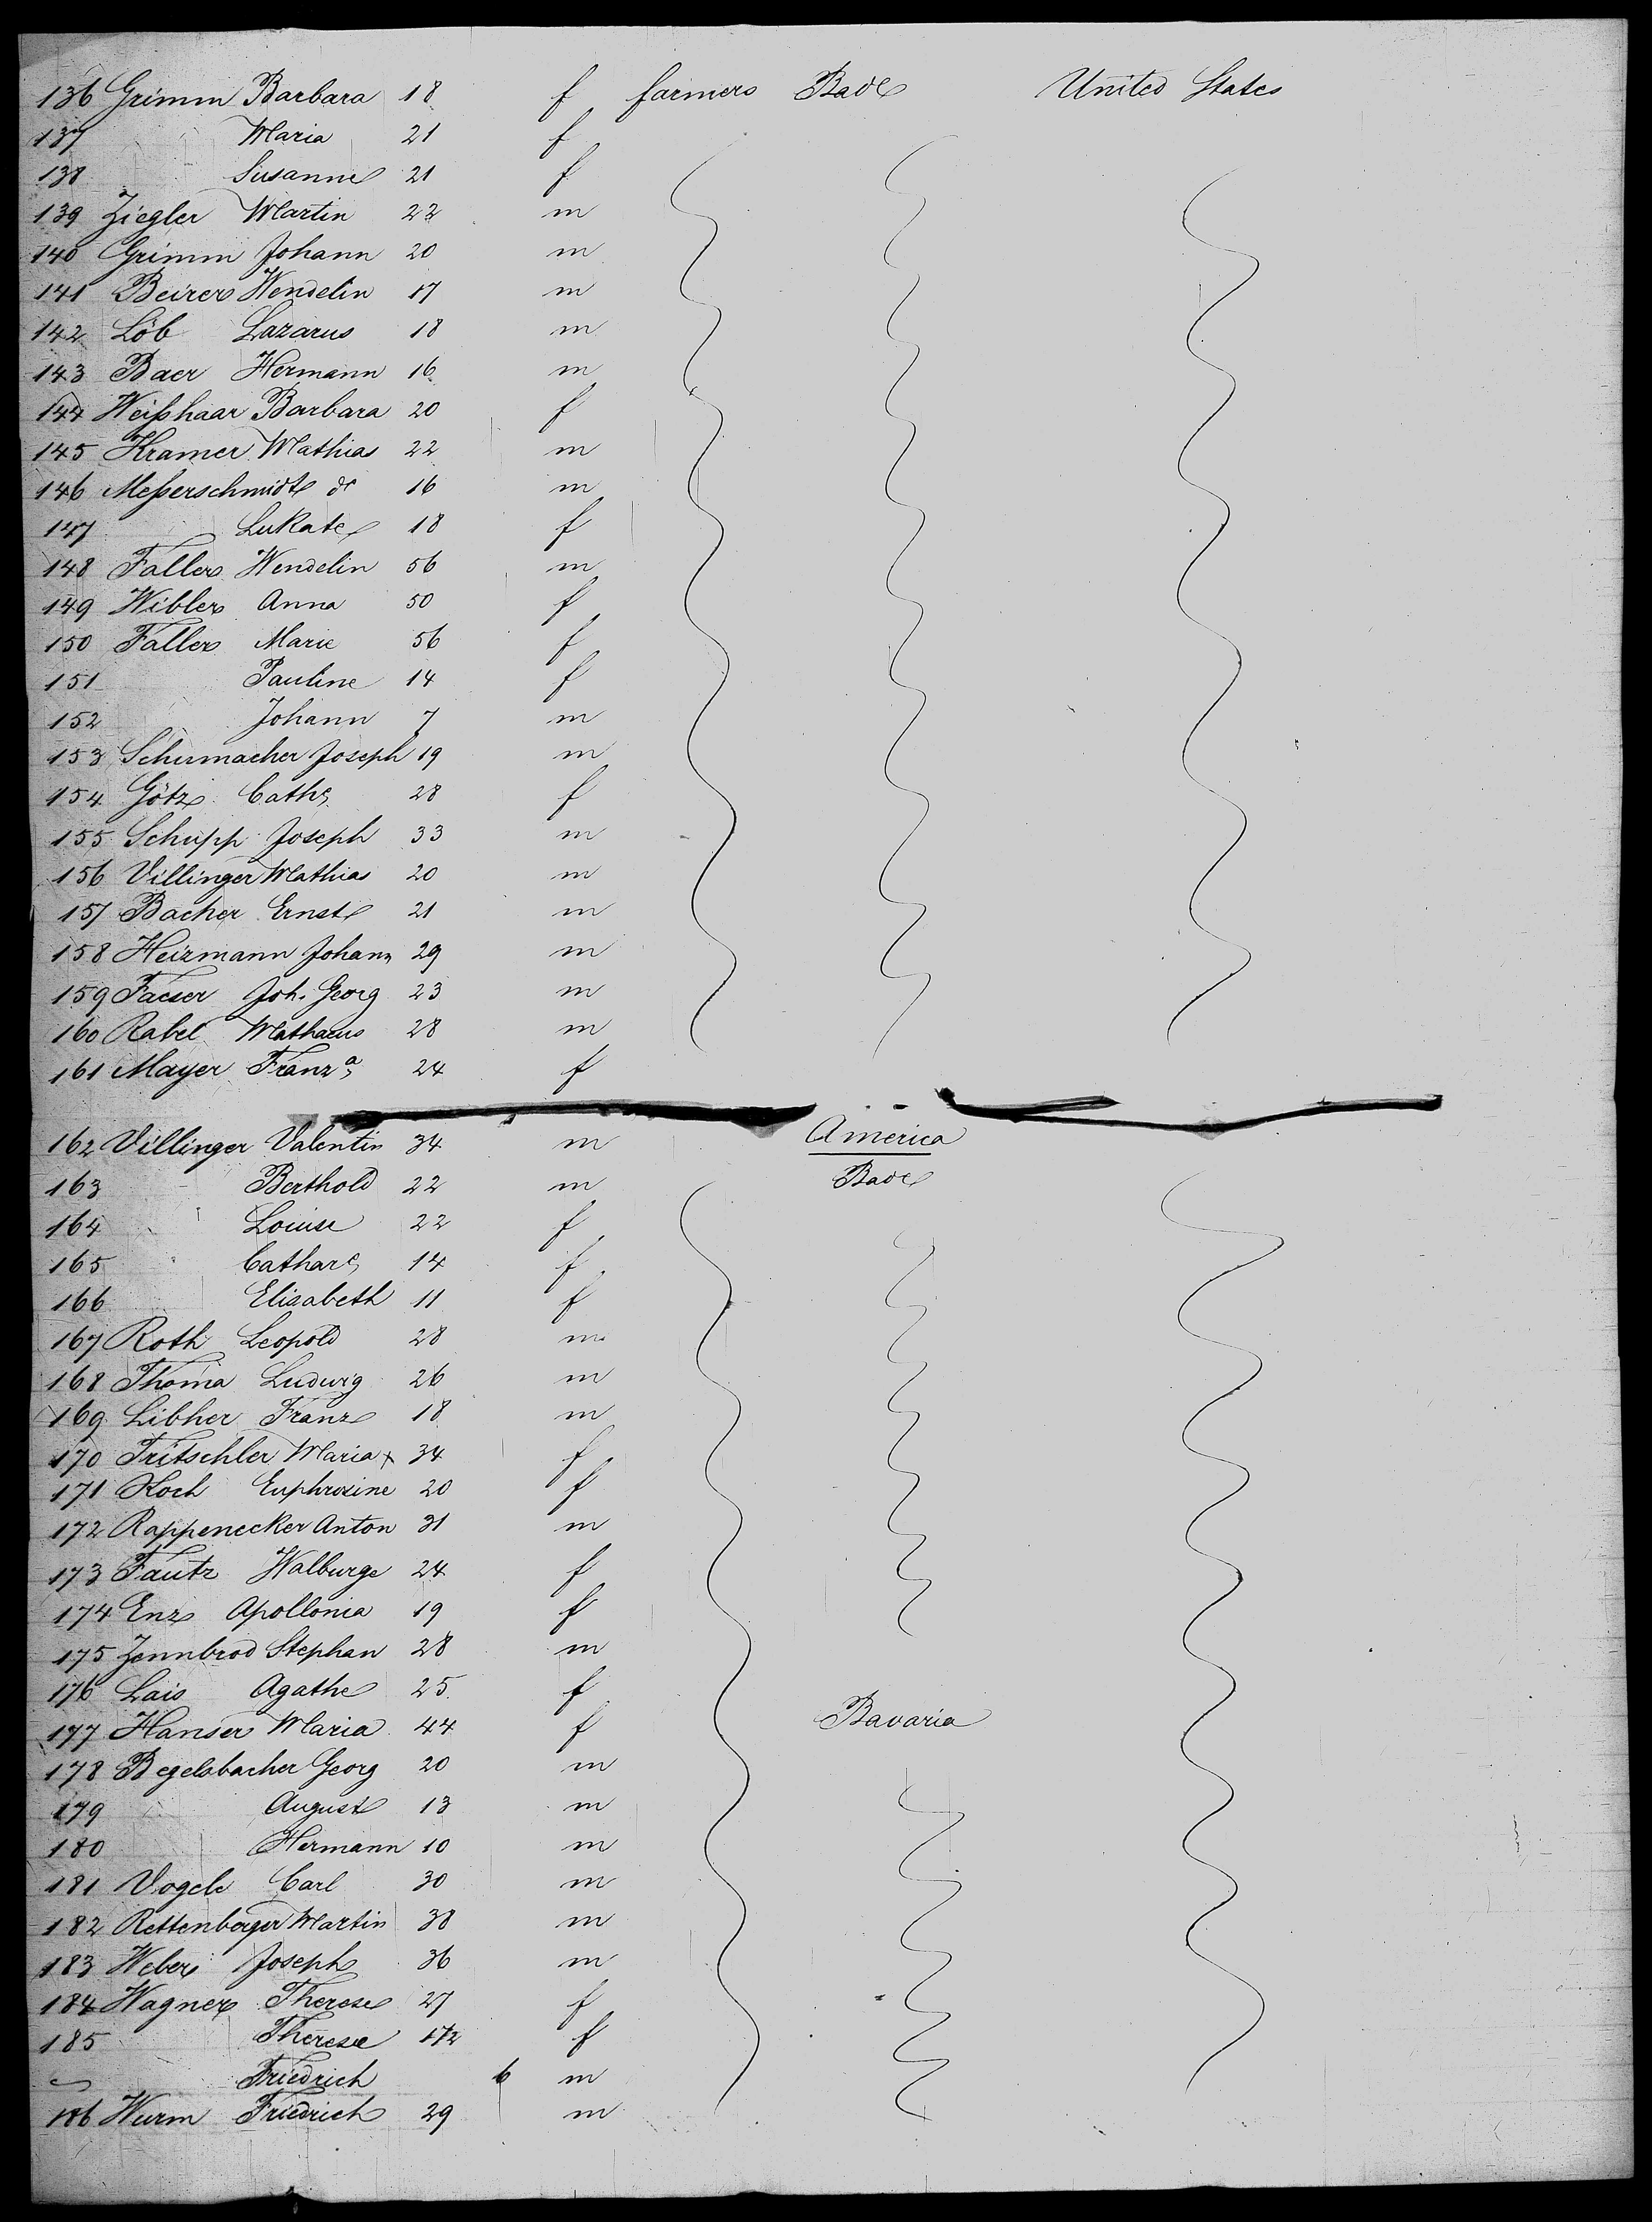 136 Grimm Barbara 18 f farmers Bade United States
137 Maria 21 f
138 Susanne 21 f
139 Ziegler Martin 22 m
140 Grimm Johann 20 m
141 Beirer Wendelin 17 m
142 Löb Lazarus 18 m
143 Baer Hermann 16 m
144 Weißhaar Barbara 20 f
145 Kramer Mathias 22 m
146 Meßerschmidt do 16 m
147 Lukate 18 f
148 Faller Wendelin 56 m
149 Wibler Anna 50 f
150 Faller Marie 56 f
151 Pauline 14 f
152 Johann 7 m
153 Schumacher Joseph 19 m
154 Götz Cathe 28 f
155 Schupp Joseph 33 m
156 Villinger Mathias 20 m
157 Bacher Ernst 21 m
158 Heizmann Johann 29 m
159 Faeser Joh. Georg 23 m
160 Rabel Mathaeus 28 m
161 Mayer Franza 24 f
162 Villinger Valentin 34 m America
163 Berthold 22 m Bade
164 Louise 22 f
165 Cathare 14 f
166 Elisabeth 11 f
167 Roth Leopold 28 m
168 Thoma Ludwig 26 m
169 Libher Franz 18 m
170 Tritschler Maria x 34 f
171 Koch Euphrosine 20 f
172 Rappenecker Anton 31 m
173 Fautz Walburge 24 f
174 Enz Apollonia 19 f
175 Zennbrod Stephan 28 m
176 Lais Agathe 25 f
177 Hanser Maria 44 f Bavaria
178 Begelsbacher Georg 20 m
179 August 13 m
180 Hermann 10 m
181 Vogele Carl 30 m
182 Rettenberger Martin 38 m
183 Weber Joseph 36 m
184 Wagner Therese 27 f
185 Therese f
Friedrich 6 m
186 Wurm Friedrich 29 m